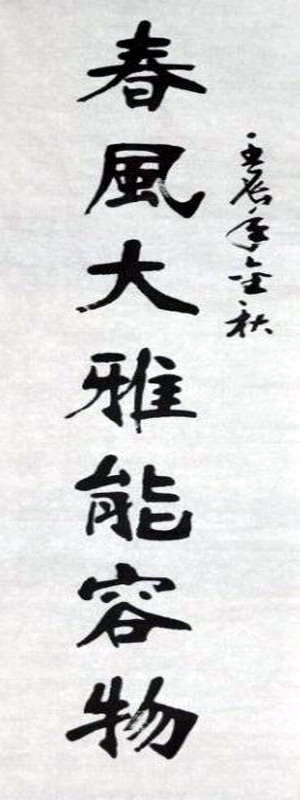 壬辰年金秋
春風大雅能容物